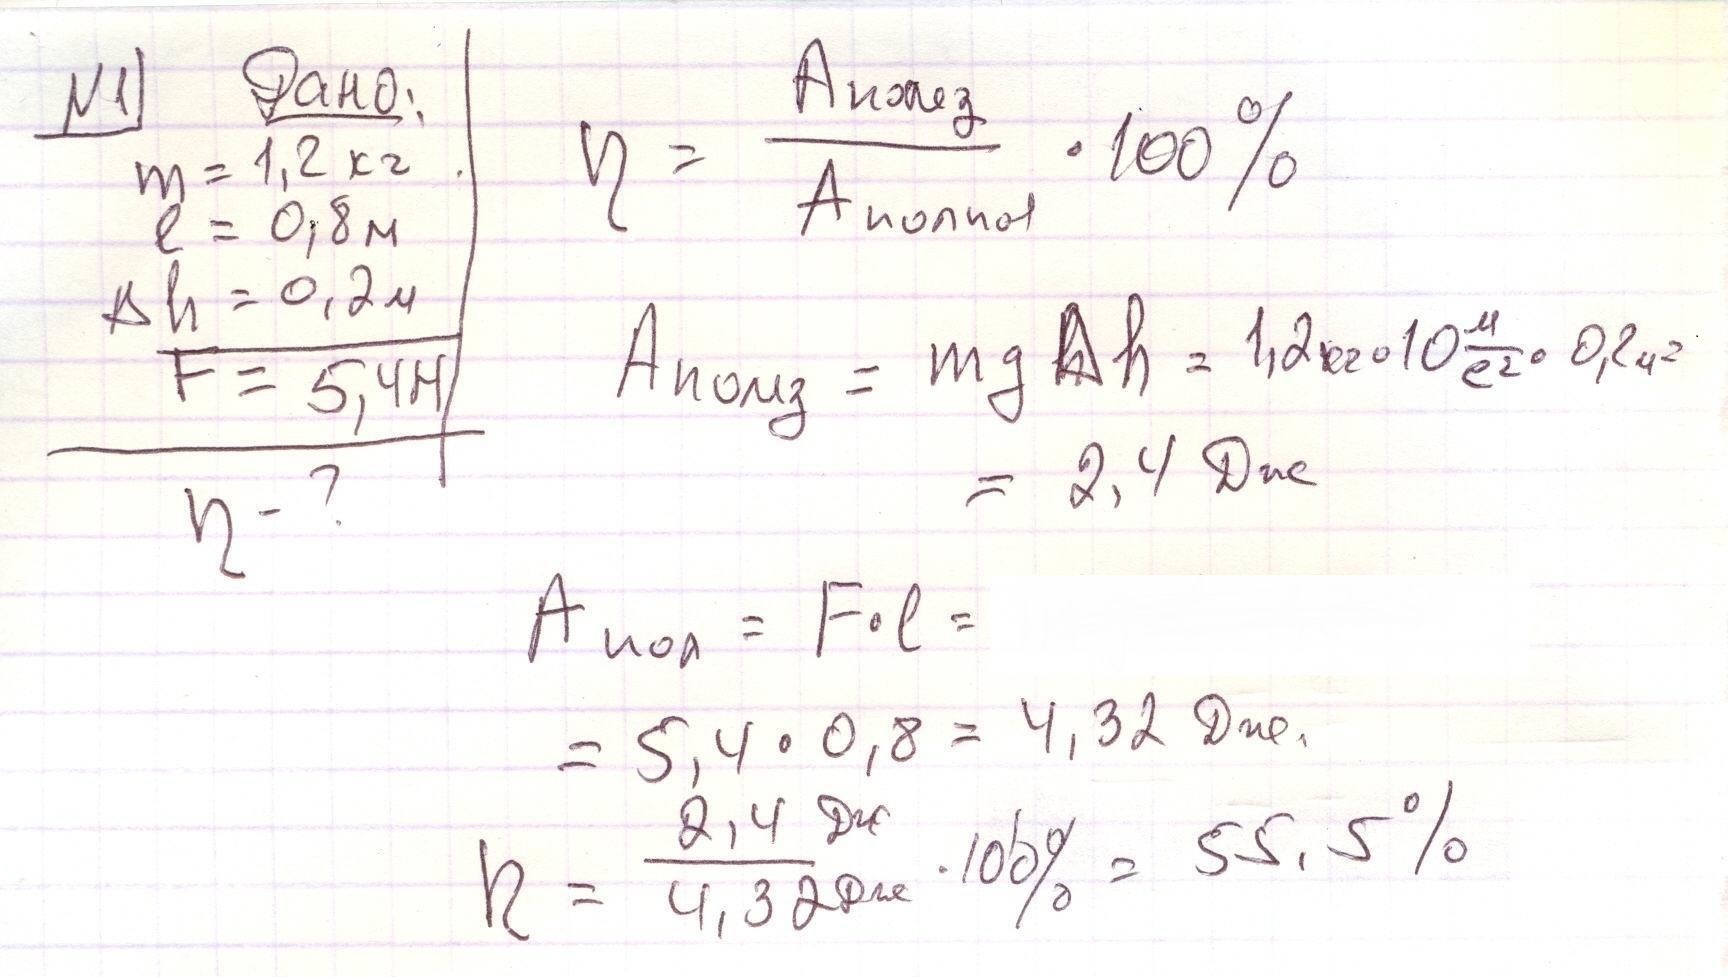 №1 Дано:
m = 1,2 кг
l = 0,8 м
Δh = 0,2 м
F = 5,4 Н
η - ?
η = Аполез / Аполной · 100%
Аполез = mgΔh = 1,2 кг · 10 м/с² · 0,2 м =
= 2,4 Дж
Апол = F·l =
= 5,4 · 0,8 = 4,32 Дж.
η = 2,4 Дж / 4,32 Дж · 100% = 55,5%